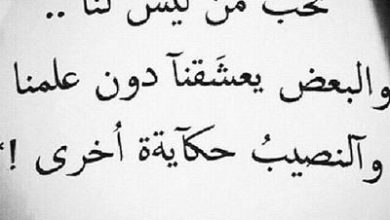 نحب من ليس لنا ..
والبعض يعشَقنآ دون علمنا
وآلنصيبُ حكآيةة اُخرى !،